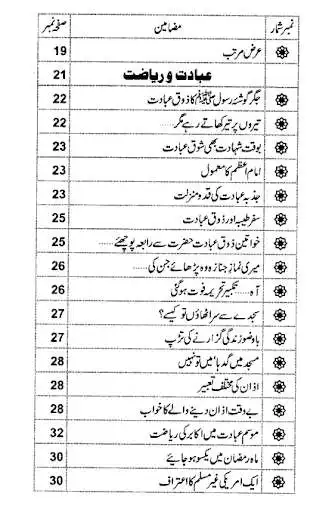 نمبر شمار مضامین صفحہ نمبر
عرض مرتب 19
عبادت و ریاضت 21
جگر گوشئہ رسول ﷺ کا ذوق عبادت 22
تیروں پر تیر کھاتے رہے مگر...... 22
بوقت شہادت بھی شوق عبادت 23
امام اعظم کا معمول 23
جذبہ عبادت کی قدر و منزلت 23
سفر طیبہ اور ذوق عبادت 25
خواتین ذوق عبادت حضرت سے رابعہ پوچھئے...... 25
میری نماز جنازہ وہ پڑھائے جن کی...... 26
آہ...... تکبیر تحریمہ فوت ہو گئی 26
سجدے سے سر اٹھاؤں تو کیسے؟ 27
باوضو زندگی گزارنے کی تڑپ 27
مسجد میں گدہا' میں تو نہیں 28
اذان کی مختلف تعبیر 28
بے وقت اذان دینے والے کا خواب 28
موسم عبادت میں اکابر کی ریاضت 32
ماہ رمضان میں یکسو ہو جائیے 30
ایک امریکی غیر مسلم کا اعتراف 30